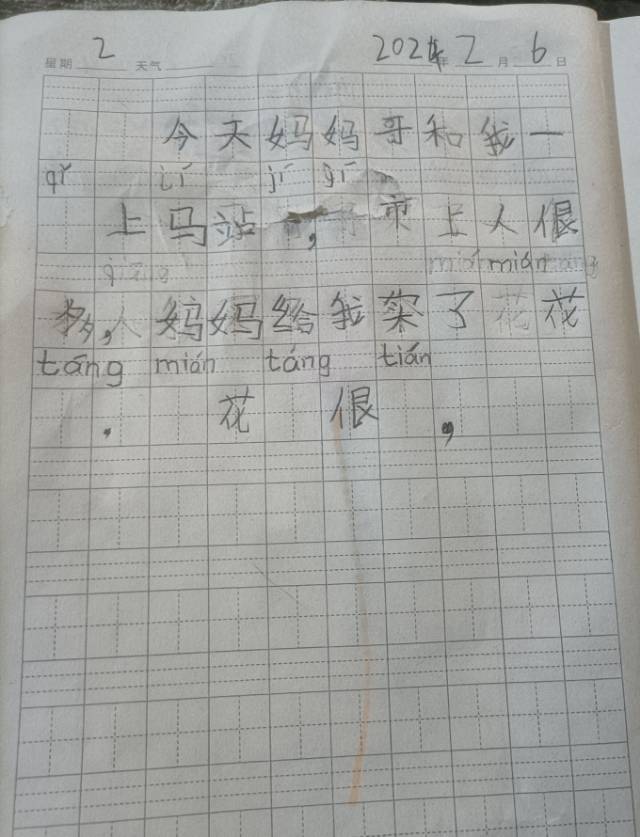 星期 2 天气 2024年 2月 6日
今天妈妈哥和我一
qǐ jí jí gí
上马站,来上人很
mián mián táng
多,人妈妈给我买了花花
táng mián táng tián
.花很,